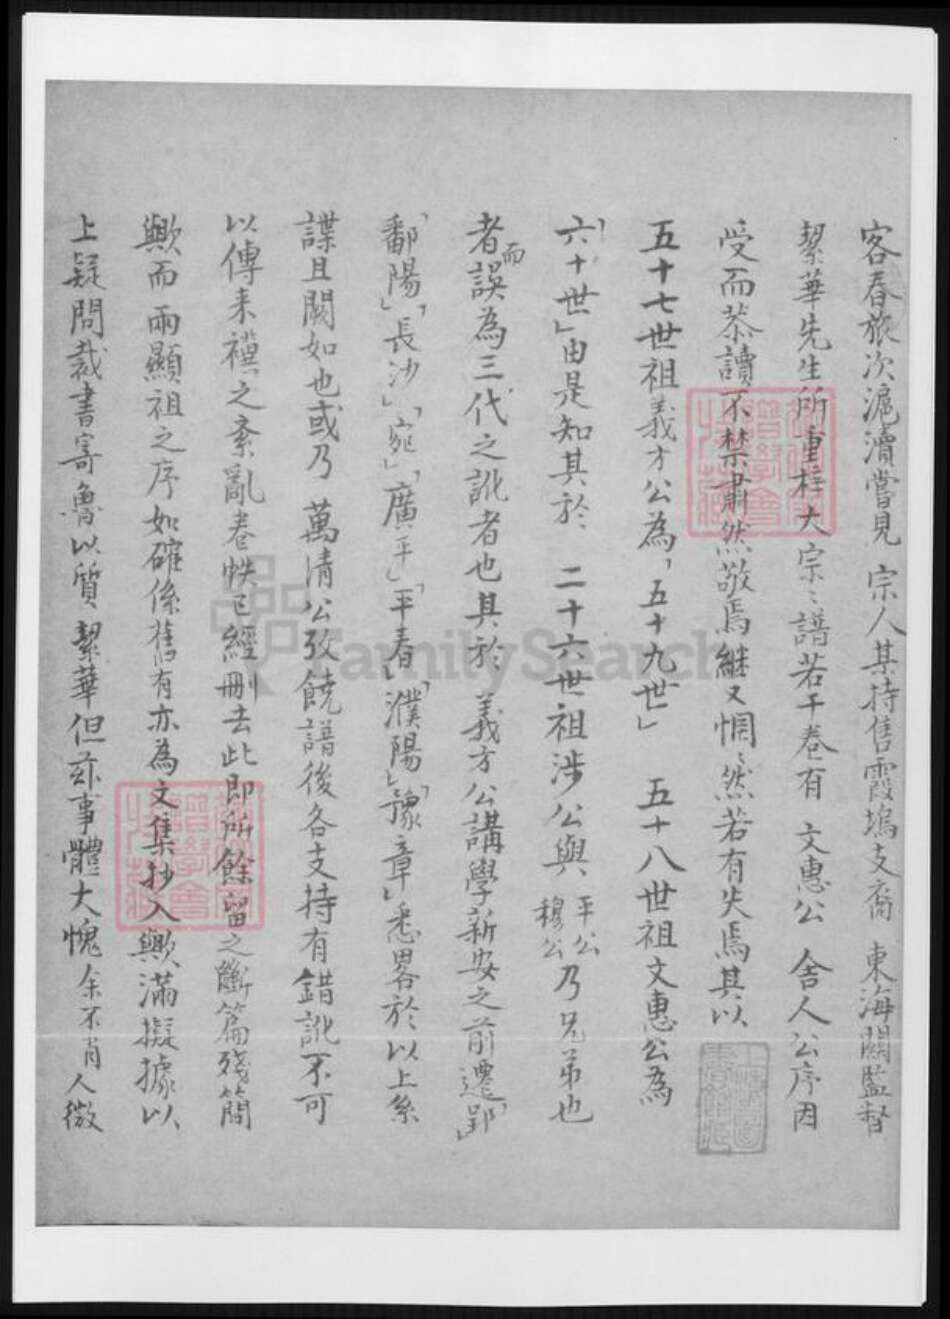 客春旅次滬瀆嘗見 宗人某持售霞塢支裔 東海關監督
絜華先生所重梓大宗〻譜若干卷有 文惠公 舍人公序因
受而恭讀不禁肅然敬焉繼又惘〻然若有失焉其以
五十七世祖義方公為「五十九世」 五十八世祖文惠公為
「六十世」由是知其於 二十六世祖涉公與平公穆公乃兄弟也
者而誤為三代之訛者也其於 義方公講學新安之前遷「郢」
「鄱陽」「長沙」「宛」「廣平」「平春」「濮陽」「豫章」悉畧於以上系
諜且闕如也或乃 萬清公攷饒譜後各支持有錯訛不可
以傳来禩之紊亂卷帙已經刪去此即所餘留之斷篇殘簡
歟而兩顯祖之序如確係舊有亦為文集抄入歟滿擬據以
上疑問裁書寄魯以質絜華但茲事體大愧余不肖人微
FamilySearch